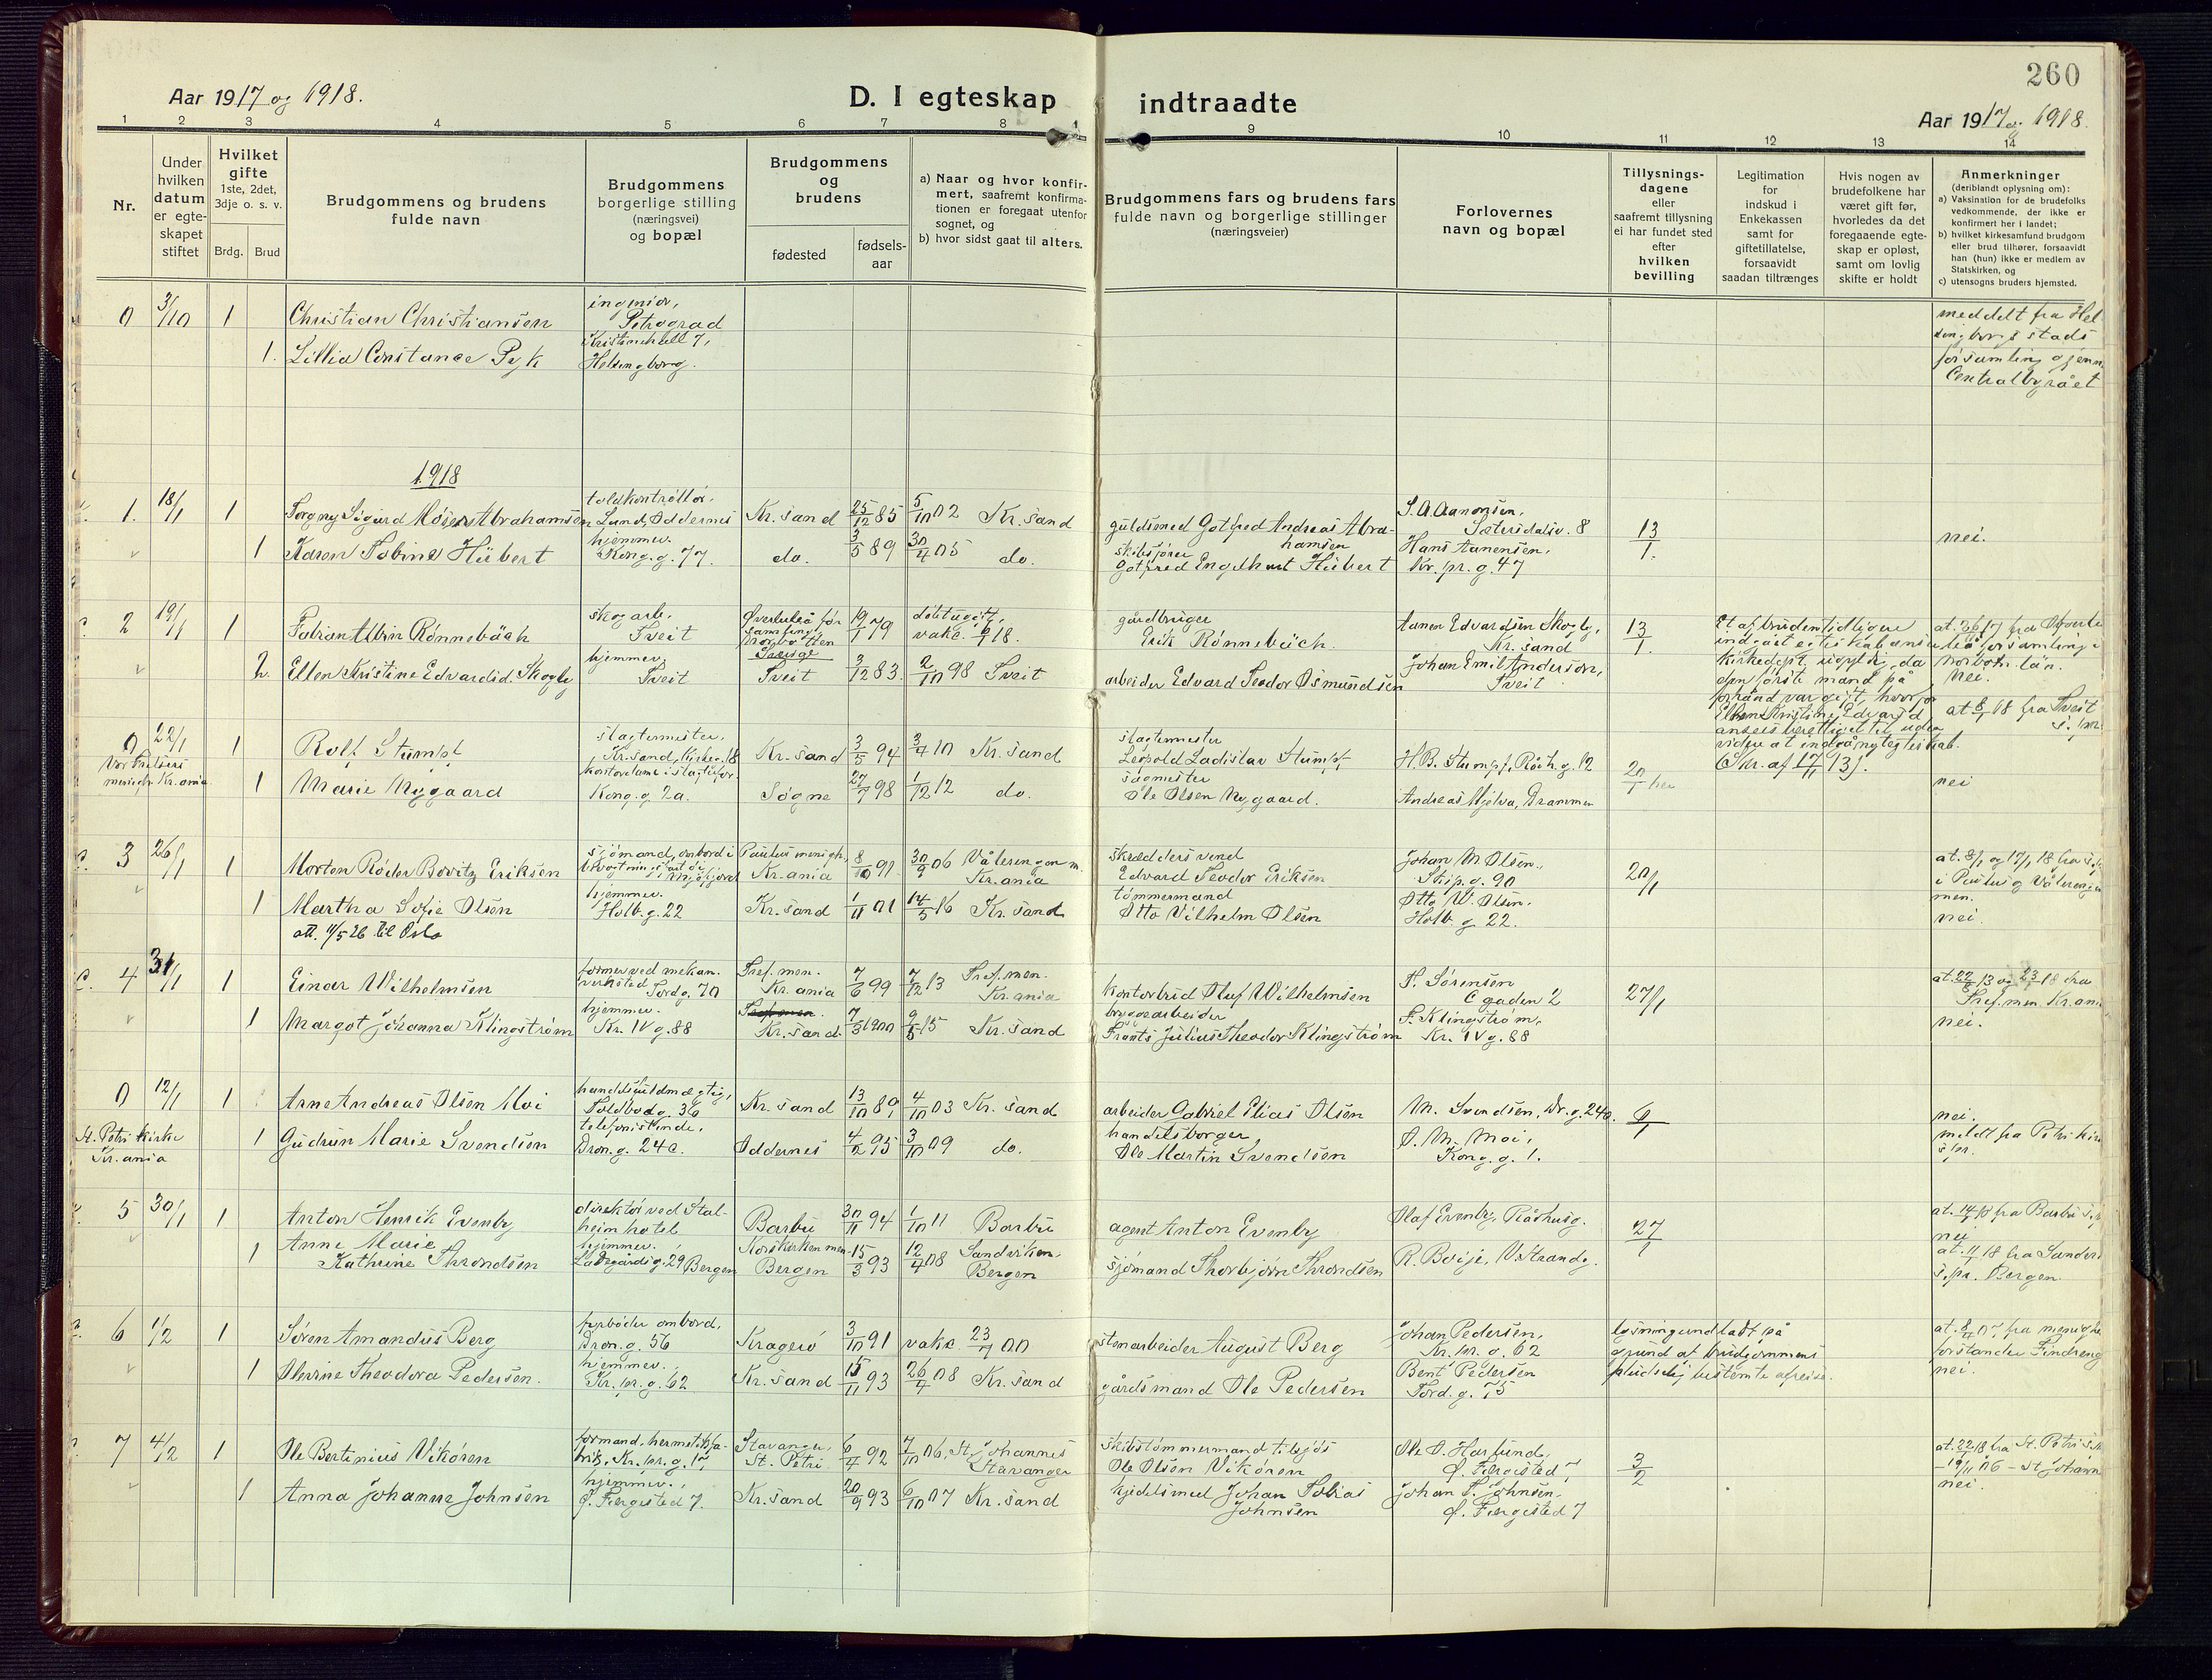 260
Aar 1917 og 1918.
D. I egteskap indtraadte
Aar 1917 og 1918.
1 2 3 4 5 6 7 8 9 10 11 12 13 14
Nr.
Under hvilken datum er egteskapet stiftet
Hvilket gifte 1ste, 2det, 3dje o. s. v.
Brdg. Brud
Brudgommens og brudens fulde navn
Brudgommens borgerlige stilling (næringsvei) og bopæl
Brudgommens og brudens
fødested fødselsaar
a) Naar og hvor konfirmert, saafremt konfirmationen er foregaat utenfor sognet, og
b) hvor sidst gaat til alters.
Brudgommens fars og brudens fars fulde navn og borgerlige stillinger (næringsveier)
Forlovernes navn og bopæl
Tillysningsdagene eller saafremt tillysning ei har fundet sted efter hvilken bevilling
Legitimation for indskud i Enkekassen samt for giftetillatelse, forsaavidt saadan tiltrænges
Hvis nogen av brudefolkene har været gift før, hvorledes da det foregaaende egteskap er opløst, samt om lovlig skifte er holdt
Anmerkninger (deriblandt oplysning om):
a) Vaksination for de brudefolks vedkommende, der ikke er konfirmert her i landet;
b) hvilket kirkesamfund brudgom eller brud tilhører, forsaavidt han (hun) ikke er medlem av Statskirken, og
c) utensogns bruders hjemsted.
0 3/10 1 Christian Christiansen
ingeniør, Petrograd
1. Lillia Constance Pyk
Kristinehill 7, Helsingborg.
meddelt fra Helsingborgs stads församling gjenn. Centralbyrået
1918
1. 18/1 1 Torgny Sigurd Møier Abrahamsen
toldkontrollør. Lund, Oddernes
Kr. sand 25/12 85 5/10 02 Kr. sand
guldsmed Gotfred Andreas Abrahamsen
S. A. Aanonsen, Sætersdalsv. 8
13/1.
1 Karen Tobine Hübert
hjemmev. Kong. g. 77.
do. 3/5 89 30/4 05 do.
skibsfører Gotfred Engelhart Hübert
Hans Aanensen, Kr. pr. g. 47
nei.
2 19/1 1 Fabian Albin Rønnebäck
skogarb. Tveit
Øvertuleå församling norbotten Sverige
19/1 79
vakc. 9/1 18.
gårdbruger Erik Rønnebäck.
Aanen Edvardsen Skogly, Kr. sand
13/1.
2. Ellen Kristine Edvardsd. Skogly
hjemmev. Tveit
Tveit 3/12 83. 2/10 98 Tveit
arbeider Edvard Teodor Osmundsen
Johan Emil Anderson, Tveit
Et af bruden tidligere indgåt egteskab ansees
kirkedept. ugyldig, da
den første mand på
forhånd var gift, hvorfor
Ellen Kristine Edvardsd.
ansees berettiget til uden
videre at indgå nyt egteskab.
(Skr. af 17/11 13).
nei.
at. 8/1 18 fra Tveit s. pr.
0 22/1 1 Rolf Stumpf
Vor Frelsers menigh. Kr.ania
slagtermester, Kr. sand, Kirkeg. 18
Kr. sand 3/5 94 3/4 10 Kr. sand
slagtermester Leopold Ladislav Stumpf
H. B. Stumpf, Rådh. g. 12
20/1 her
1 Marie Nygaard
kontordame i slagterfor. Kong. g. 2a.
Søgne 27/7 98 1/12 12 do.
sagmester Ole Olsen Nygaard.
Andreas Mjelva, Drammen
nei
3 26/1 1 Morten Røder Bovitz Eriksen
Paulus menigh. Kr. ania
8/10 91. 30/9 06 Vålerengen m. Kr. ania
skreddersvend Edvard Teodor Eriksen
Johan M. Olsen, Skip. g. 90
20/1
at. 8/1 og 17/1 18 fra s.pr. i Paulus og Vålerengen men.
1 Martha Sofie Olsen
att. 11/5 26 til Oslo
hjemmev. Holb. g. 22
Kr. sand 1/11 01 14/5 16 Kr. sand
tømmermand Otto Vilhelm Olsen
Otto W. Olsen, Holb. g. 22.
nei.
4 31/1 1 Einar Wilhelmsen
former ved mekan. verksted Tordg. 70
Tref. men. Kr. ania 7/6 99 7/12 13 Tref. men. Kr. ania
kontorbud Oluf Wilhelmsen
H. Sørensen C gaden 2
27/1
Tref. men. Kr. ania
1 Margot Johanna Klingstrøm
hjemmev. Kr. IV g. 88
Kr. sand. 7/3 1900 9/5 15 Kr. sand
bryggearbeider Frants Julius Theodor Klingstrøm
F. Klingstrøm, Kr. IV g. 88
nei.
0 12/1 1 Arne Andreas Olsen Moi
St. Petri Kirke Kr. ania
handelsfuldmægtig, Toldbodg. 36
Kr. sand 13/10 89 4/10 03 Kr. sand
arbeider Gabriel Elias Olsen
M. Svendsen, Dr. g. 24a.
6/1
nei.
1 Gudrun Marie Svendsen
telefonistinde, Dron. g. 24a.
Oddernes 4/2 95 3/10 09 do.
handelsborger, Ole Martin Svendsen
O. M. Moi, Kong. g. 1.
meldt fra Petri kirk s. pr.
5 30/1 1 Anton Henrik Evenby
direktør ved Stalheim hotel
Barbu 30/11 94 1/10 11 Barbu
agent Anton Evenby
Olaf Evenby, Rådhusg.
27/1
at. 14/1 18 fra Barbu s. pr.
nei
1 Anne Marie Kathrine Throndsen
hjemmev. Ladegårdsg. 29 Bergen
Korskirken men. Bergen 15/3 93 12/4 08 Sandviken, Bergen
sjømand Thorbjørn Throndsen
R. Boije, V. Strandg.
s. pr. Bergen.
6 1/2 1 Søren Amandus Berg
fyrbøder ombord, Dron. g. 56
Kragerø 3/10 91 vakc. 23/7 00
stenarbeider August Berg
Johan Pedersen, Kr. pr. g. 62
lysning undladt på grund af brudgommens pludselig bestemte afreise.
at. 8/4 07 fra menighe forstander Findreng
1 Olerine Theodora Pedersen.
hjemmev. Kr. pr. g. 62
Kr. sand 15/11 93 26/4 08 Kr. sand
gårdsmand Ole Pedersen
Bent Pedersen Tord. g. 75
nei.
7 4/2 1 Ole Bertinius Vikøren
formand, hermetikfabrik, Kr. pr. g. 15
Stavanger, St. Petri 6/4 92 7/10 06, St. Johannes Stavanger
skibstømmermand tilsjøs Ole Olsen Vikøren
Ole O. Haslund, Ø. Færgested 7
3/2
at. 22/1 18 fra St. Petri s. pr.
- 19/11 06 - St. Johann
1 Anna Johanne Johnsen
hjemmev. Ø. Færgested 7.
Kr. sand 20/9 93 6/10 07 Kr. sand
kjedelsmed Johan Tobias Johnsen
Johan T. Johnsen, Ø. Færgested 7
nei.